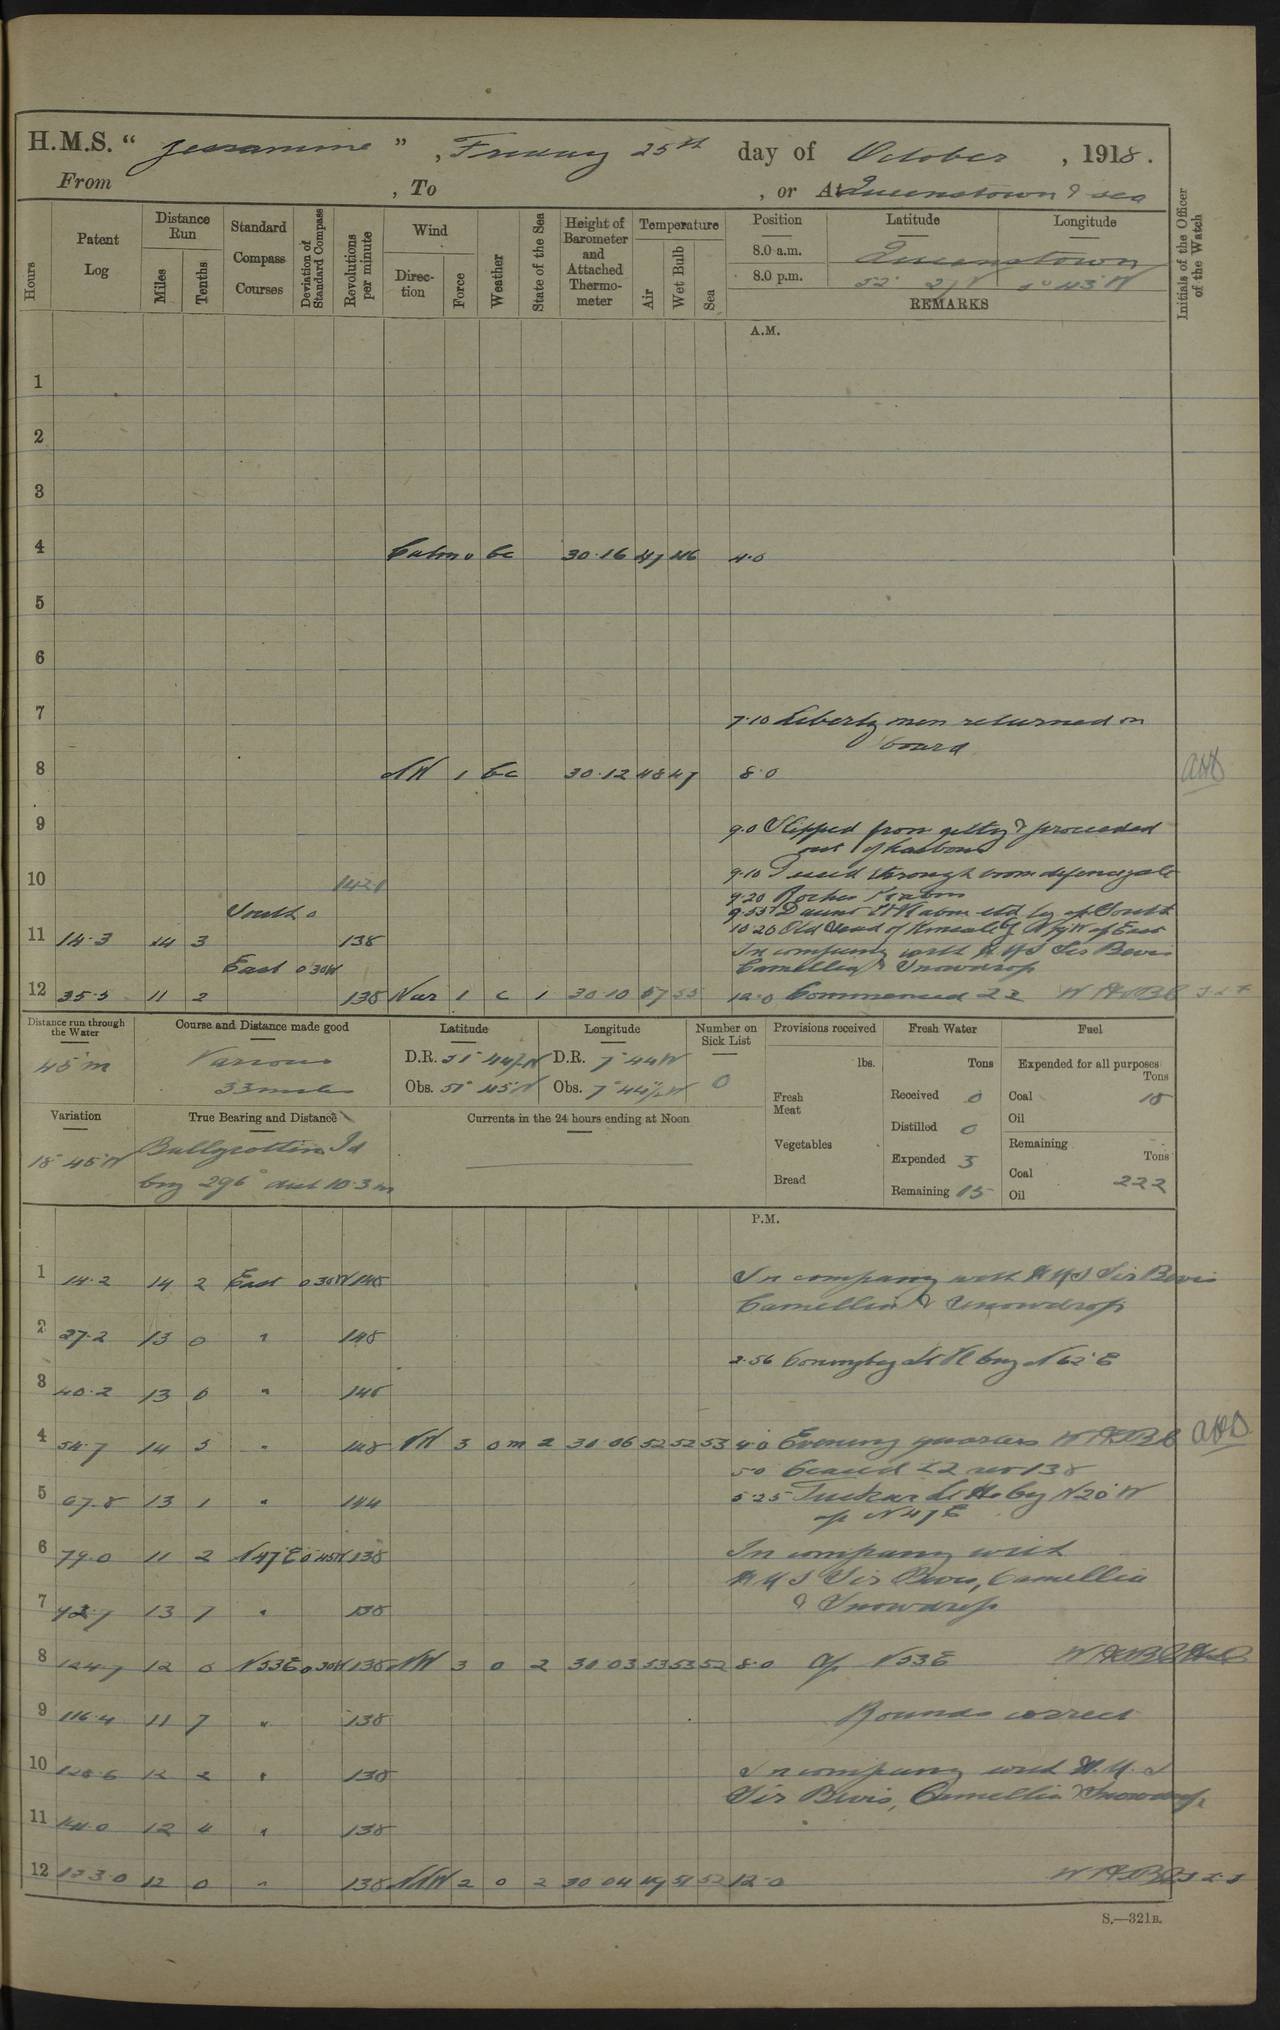 H.M.S. " Jessamine ", Friday 25th day of October, 1918.
From , To , or At Queenstown & sea
Hours
Patent Log
Distance Run
Miles
Tenths
Standard Compass Courses
Deviation of Standard Compass
Revolutions per minute
Wind
Direction
Force
Weather
State of the Sea
Height of Barometer and Attached Thermometer
Temperature
Air
Wet Bulb
Sea
Position Latitude Longitude
8.0 a.m. Queenstown
8.0 p.m. 52°
REMARKS
Initials of the Officer of the Watch
A.M.
1
2
3
4 Calm 0 bc 30.16 47 46 4.0
5
6
7 7.10 Liberty men returned on
board
8 NW 1 bc 30.12 48 47 8.0
9 9.0 Slipped from jetty & proceeded
out of harbour
10 9.10 Passed through boom defence gate
9.20 Roches Pt abm
South 0 9.55 Daunt Lt V abm
11 14.3 14 3 138 10.20 Old Head of Kinsale
In company with H.M.S Sir Bevis
East 0°30W Camellia & Snowdrop
12 35.5 11 2 138 Var 1 c 1 30.10 57 55 12.0 Commenced ZZ WHDBC
Distance run through the Water
45 m
Course and Distance made good
Various
33 miles
Latitude
D.R. 51° 44½N
Obs. 51° 45'N
Longitude
D.R. 7° 44W
Obs. 7° 44½W
Number on Sick List
0
Provisions received
lbs.
Fresh Meat
Vegetables
Bread
Fresh Water
Tons
Received 0
Distilled 0
Expended 3
Remaining 15
Fuel
Expended for all purposes
Tons
Coal 18
Oil
Remaining
Tons
Coal 222
Oil
Variation
18° 45'W
True Bearing and Distance
Ballycottin Id
brg 296° dist 10.3 m
Currents in the 24 hours ending at Noon
P.M.
1 14.2 14 2 East 0°30W 148 In company with H.M.S Sir Bevis
Camellia & Snowdrop
2 27.2 13 0 " 148
2.56 Coningbeg Lt V brg N62°E
3 40.2 13 0 " 148
4 54.7 14 5 " 148 NW 3 om 2 30.06 52 52 53 4.0 Evening quarters WHDBC
5.0 Ceased ZZ rev 138
5 67.8 13 1 " 144 5.25 Tuskar Lt Ho brg N20°W
a/c N47E
6 79.0 11 2 N47E 0°45W 138 In company with
H.M.S Sir Bevis, Camellia
7 92.7 13 7 " 138 & Snowdrop
8 12 0 N53E 0°30W 138 NW 3 0 2 30.03 53 53 52 8.0 a/c N53E
9 116.4 11 7 " 138 Rounds correct
10 128.6 12 2 " 138 In company with H.M.S
Sir Bevis, Camellia & Snowdrop
11 12 4 " 138
12 12 0 " 138 NNW 2 0 2 30.04 49 51 52 12.0
S.—321B.